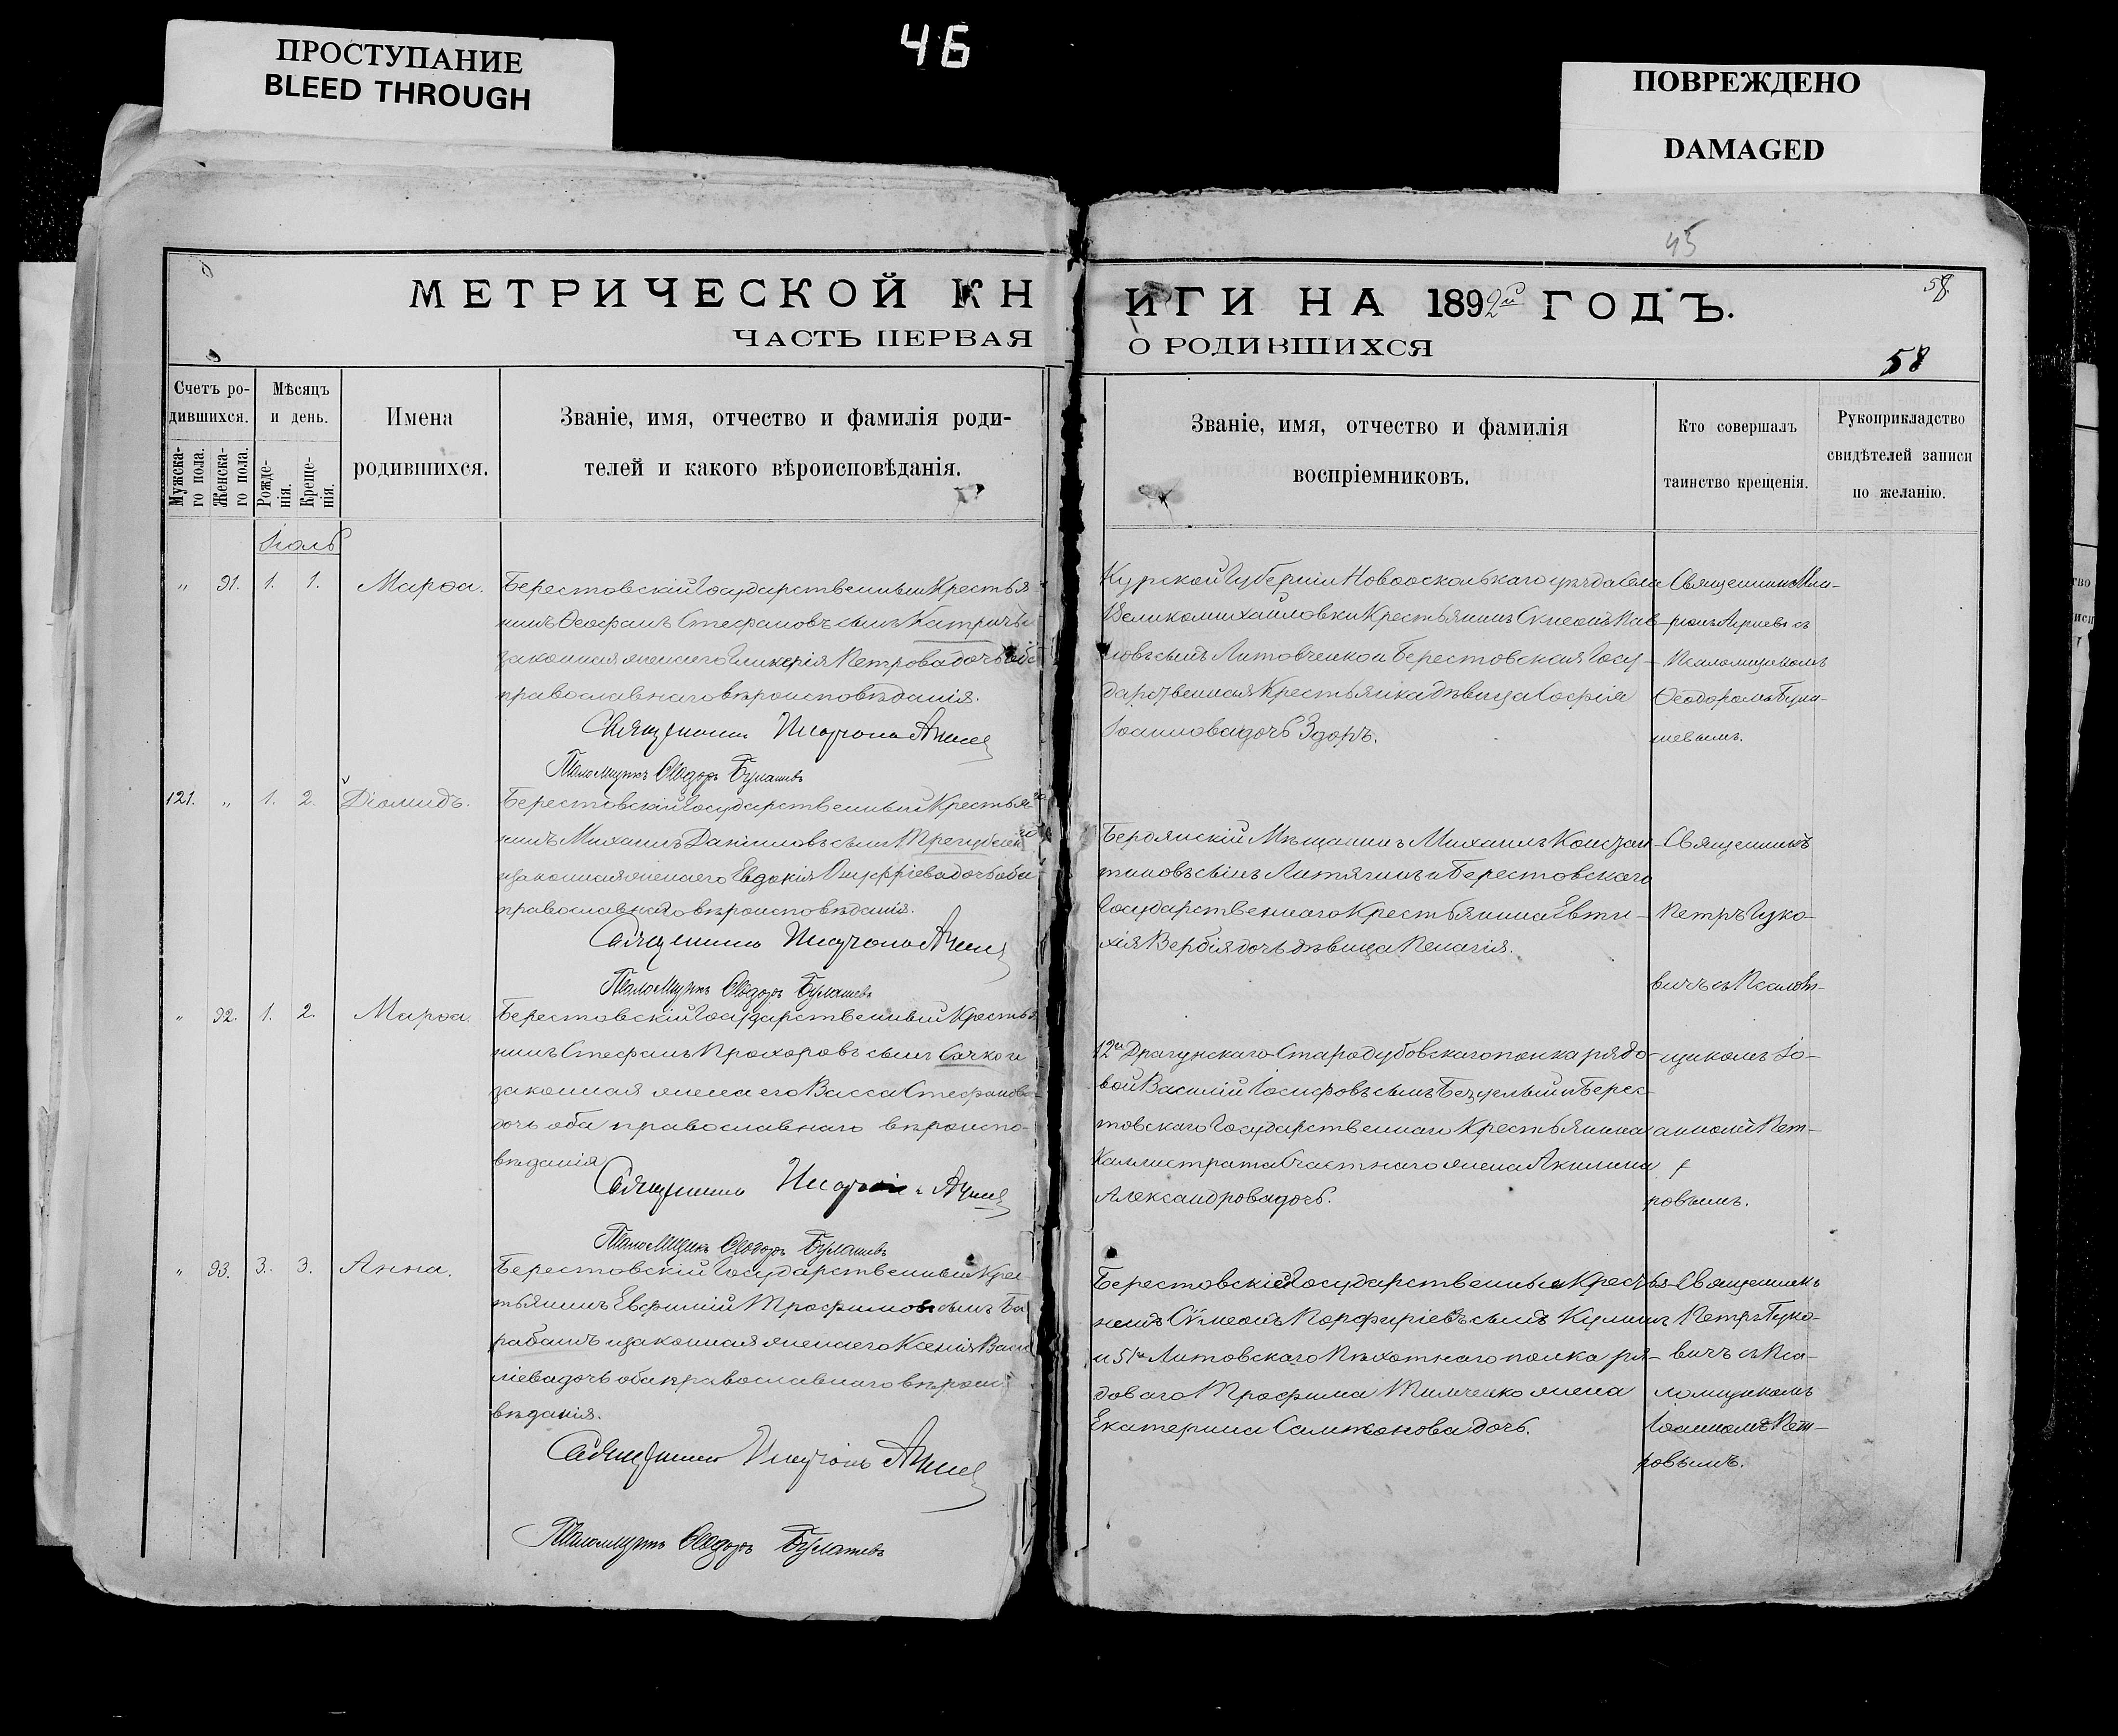 ПРОСТУПАНИЕ
BLEED THROUGH
46
ПОВРЕЖДЕНО
DAMAGED
45
58
МЕТРИЧЕСКОЙ КН
ИГИ НА 1892й ГОДЪ.
ЧАСТЬ ПЕРВАЯ
О РОДИВШИХСЯ
58
Счетъ ро-
дившихся.
Мужска-
го пола.
Женска-
го пола.
Мѣсяцъ
и день.
Рожде-
нія.
Креще-
нія.
Имена
родившихся.
Званіе, имя, отчество и фамилія роди-
телей и какого вѣроисповѣданія.
Званіе, имя, отчество и фамилія
воспріемниковъ.
Кто совершалъ
таинство крещенія.
Рукоприкладство
свидѣтелей записи
по желанію.
Іюль
„ 91. 1. 1. Марѳа.
Берестовскій Государственный Крестья-
нинъ Ѳеофанъ Стефановъ сынъ
законная жена его Гликерія Петрова дочь
православнаго вѣроисповѣданія.
Священникъ
Псаломщикъ Ѳеодоръ Булашевъ
Курской Губерніи Новооскольскаго уѣзда Села
Великомихайловки Крестьянинъ Симеонъ Пав-
ловъ сынъ Литовченко и Берестовская Госу-
дарственная Крестьянка дѣвица Софія
Іоаннова дочь Здоръ.
Священникъ
съ
Псаломщикомъ
Ѳеодоромъ Була-
шевымъ.
121. „ 1. 2. Діомидъ.
Берестовскій Государственный Крестья-
нинъ Михаилъ Даніиловъ сынъ
и законная жена его Евдокія Онуфріева дочь оба
православнаго вѣроисповѣданія.
Священникъ
Псаломщикъ Ѳеодоръ Булашевъ
Бердянскій Мѣщанинъ Михаилъ Констан-
тиновъ сынъ Литягинъ и Берестовскаго
Государственнаго Крестьянина Евти-
хія Вербія дочь дѣвица Пелагія.
Священникъ
Петръ Гуко-
вичъ съ Псалом-
щикомъ Іо-
анномъ Пет-
ровымъ.
„ 92. 1. 2. Марѳа.
Берестовскій Государственный Крестья-
нинъ Стефанъ Прохоровъ сынъ Сачко и
законная жена его Васса Стефанова
дочь оба православнаго вѣроиспо-
вѣданія
Священникъ
Псаломщикъ Ѳеодоръ Булашевъ
12го Драгунскаго Стародубовскаго полка рядо-
вой Василій Іосифовъ сынъ и Берес-
товскаго Государственнаго Крестьянина
Каллистрата Счастнаго жена Акилина
Александрова дочь.
„ 93. 3. 3. Анна.
Берестовскій Государственный Крес-
тьянинъ Евфимій Трофимовъ сынъ Ба
рабашъ и законная жена его Ксенія Васи
ліева дочь оба православнаго вѣроис
вѣданія.
Священникъ
Псаломщикъ Ѳеодоръ Булашевъ
Берестовскій Государственный Крестья-
нинъ Сѵмеонъ Порфиріевъ сынъ
и 51го Литовскаго Пѣхотнаго полка ря-
доваго Трофима Тимченко жена
Екатерина Сампсонова дочь.
Священникъ
Петръ Гуко-
вичъ съ Пса-
ломщикомъ
Іоанномъ Пет-
ровымъ.